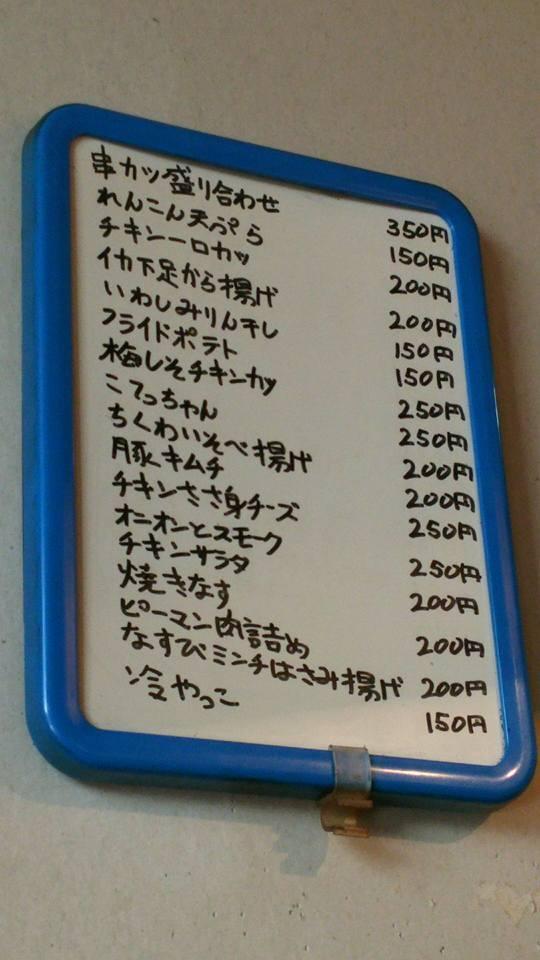 串カツ盛り合わせ 350円
れんこん天ぷら 150円
チキン一口カツ 200円
イカ下足から揚げ 200円
いわしみりん干し 150円
フライドポテト 150円
梅しそチキンカツ 250円
こてっちゃん 250円
ちくわいそべ揚げ 200円
豚キムチ 200円
チキンささ身チーズ 250円
オニオンとスモーク
チキンサラダ 250円
焼きなす 200円
ピーマン肉詰め 200円
なすびミンチはさみ揚げ 200円
冷やっこ 150円